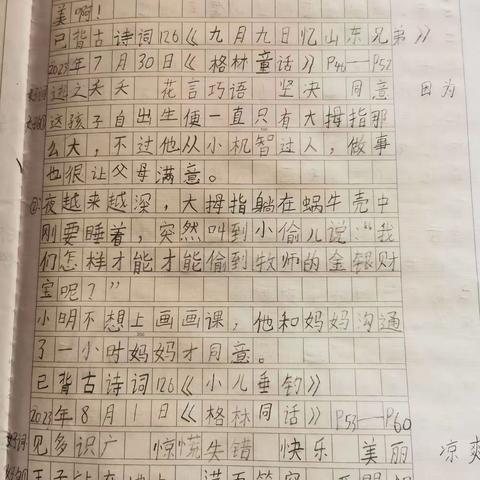 美啊！
已背古诗词126《九月九日忆山东兄弟》
2023年7月30日《格林童话》P46—P52
逃之夭夭 花言巧语 坚决 同意 因为
这孩子自出生便一直只有大拇指那
么大，不过他从小机智过人，做事
也很让父母满意。
夜越来越深，大拇指躺在蜗牛壳中
刚要睡着，突然叫到小偷儿说："我
们怎样才能才能偷到牧师的金银财
宝呢？"
小明不想上画画课，他和妈妈沟通
了一小时妈妈才同意。
已背古诗词126《小儿垂钓》
2023年8月1日《格林同话》P53—P60
好词 见多识广 惊慌失错 快乐 美丽 凉爽